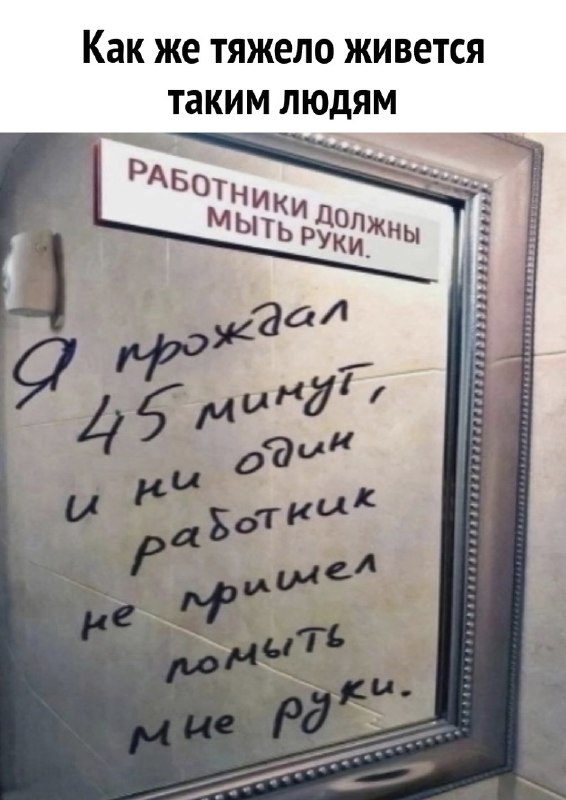 Как же тяжело живется
таким людям
РАБОТНИКИ ДОЛЖНЫ
МЫТЬ РУКИ.
Я прождал
45 минут,
и ни один
работник
не пришел
помыть
мне руки.